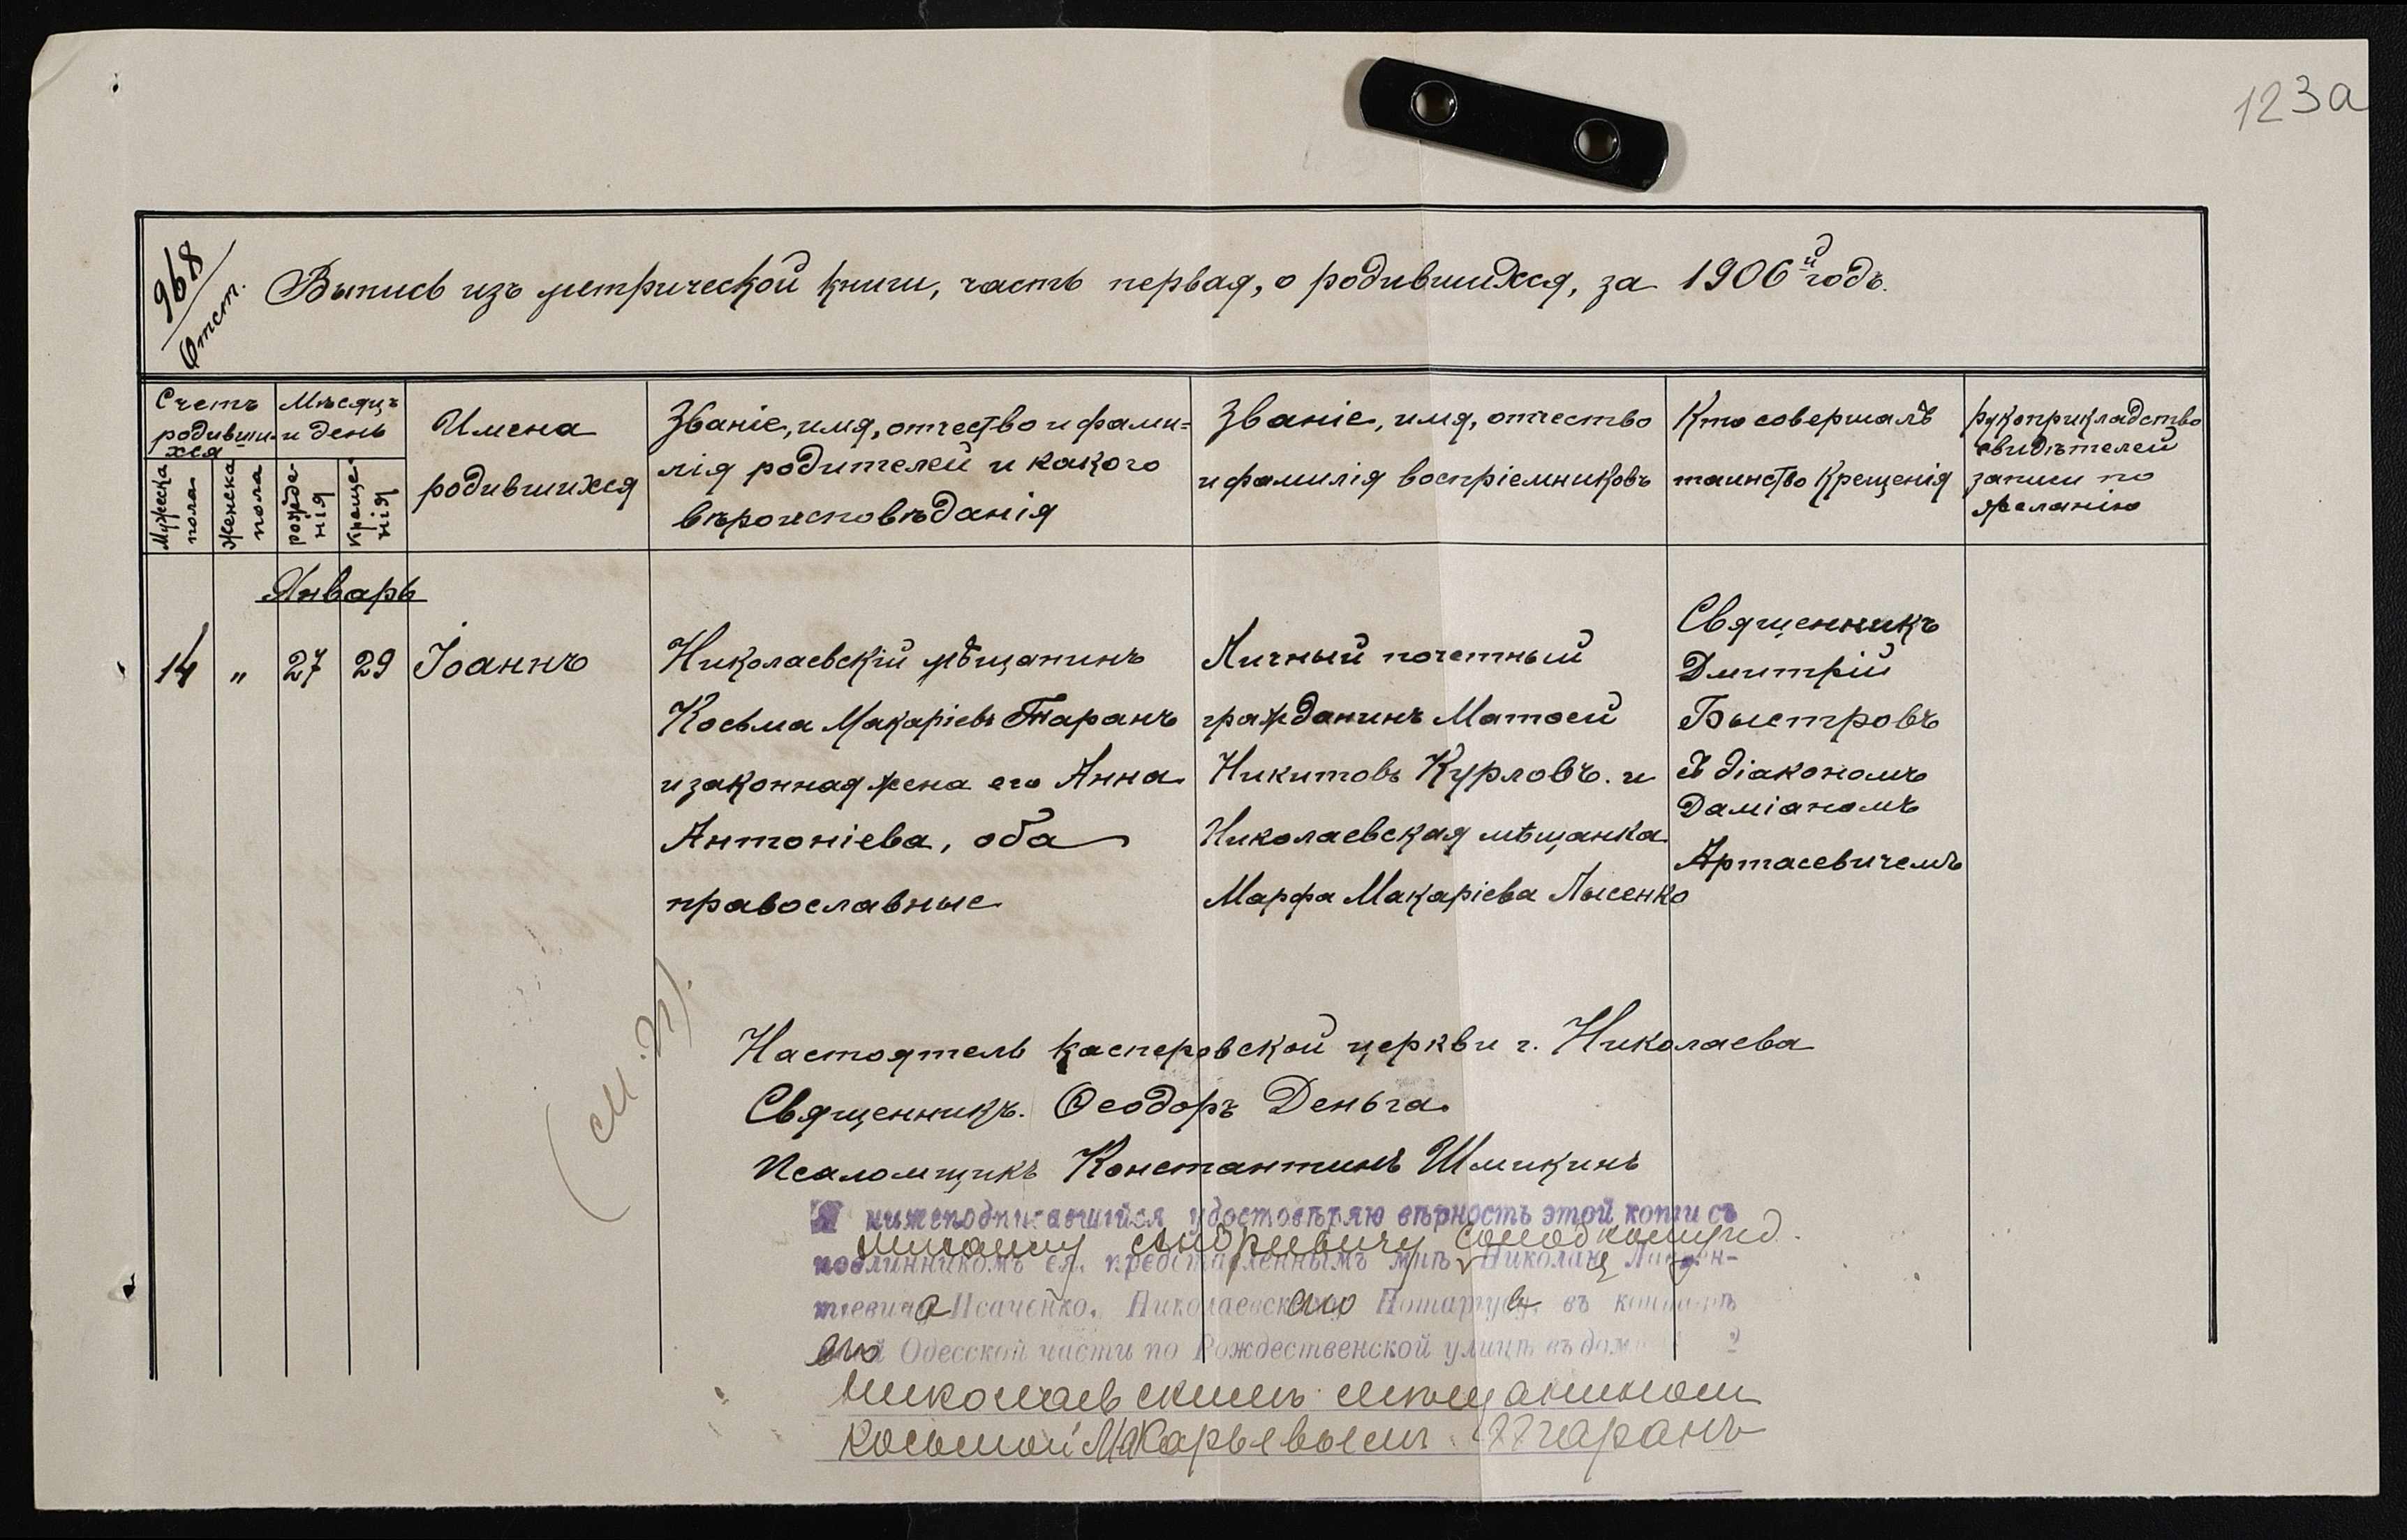 123а
968
Отст.
Выпись изъ метрической книги, часть первая, о родившихся, за 1906й годъ.
Счетъ родивши-хся
Мужеска пола
Женска пола
Мѣсяцъ и день
рожде-нія
Креще-нія
Имена
родившихся
Званіе, имя, отчество и фами=
лія родителей и какого
вѣроисповѣданія
Званіе, имя, отчество
и фамилія воспріемниковъ
Кто совершалъ
таинство Крещенія
рукоприкладство
свидѣтелей
записи по
желанію
Январь
14 " 27 29 Іоаннъ
Николаевскій мѣщанинъ
Косьма Макаріевъ Таранъ
и законная жена его Анна
Антоніева, оба
православные
Личный почетный
гражданинъ Матѳей
Никитовъ Курловъ. и
Николаевская мѣщанка
Марфа Макаріева Лысенко
Священникъ
Дмитрій
Быстровъ
съ діакономъ
Даміаномъ
Артасевичемъ
(М. П.)
Настоятель касперовской церкви г. Николаева
Священникъ. Ѳеодоръ Деньга.
Псаломщикъ Константинъ Шмикинъ
Я нижеподписавшійся удостовѣряю вѣрность этой копіи съ
Михаилу Андреевичу
подлинникомъ ея, представленнымъ мнѣ Николаю
Исаченко, Николаевскаго Нотаріуса, въ конторѣ
его Одесской части по Рождественской улицѣ въ домѣ
Николаевскимъ мѣщаниномъ
Косьмой Макарьевымъ Тараномъ